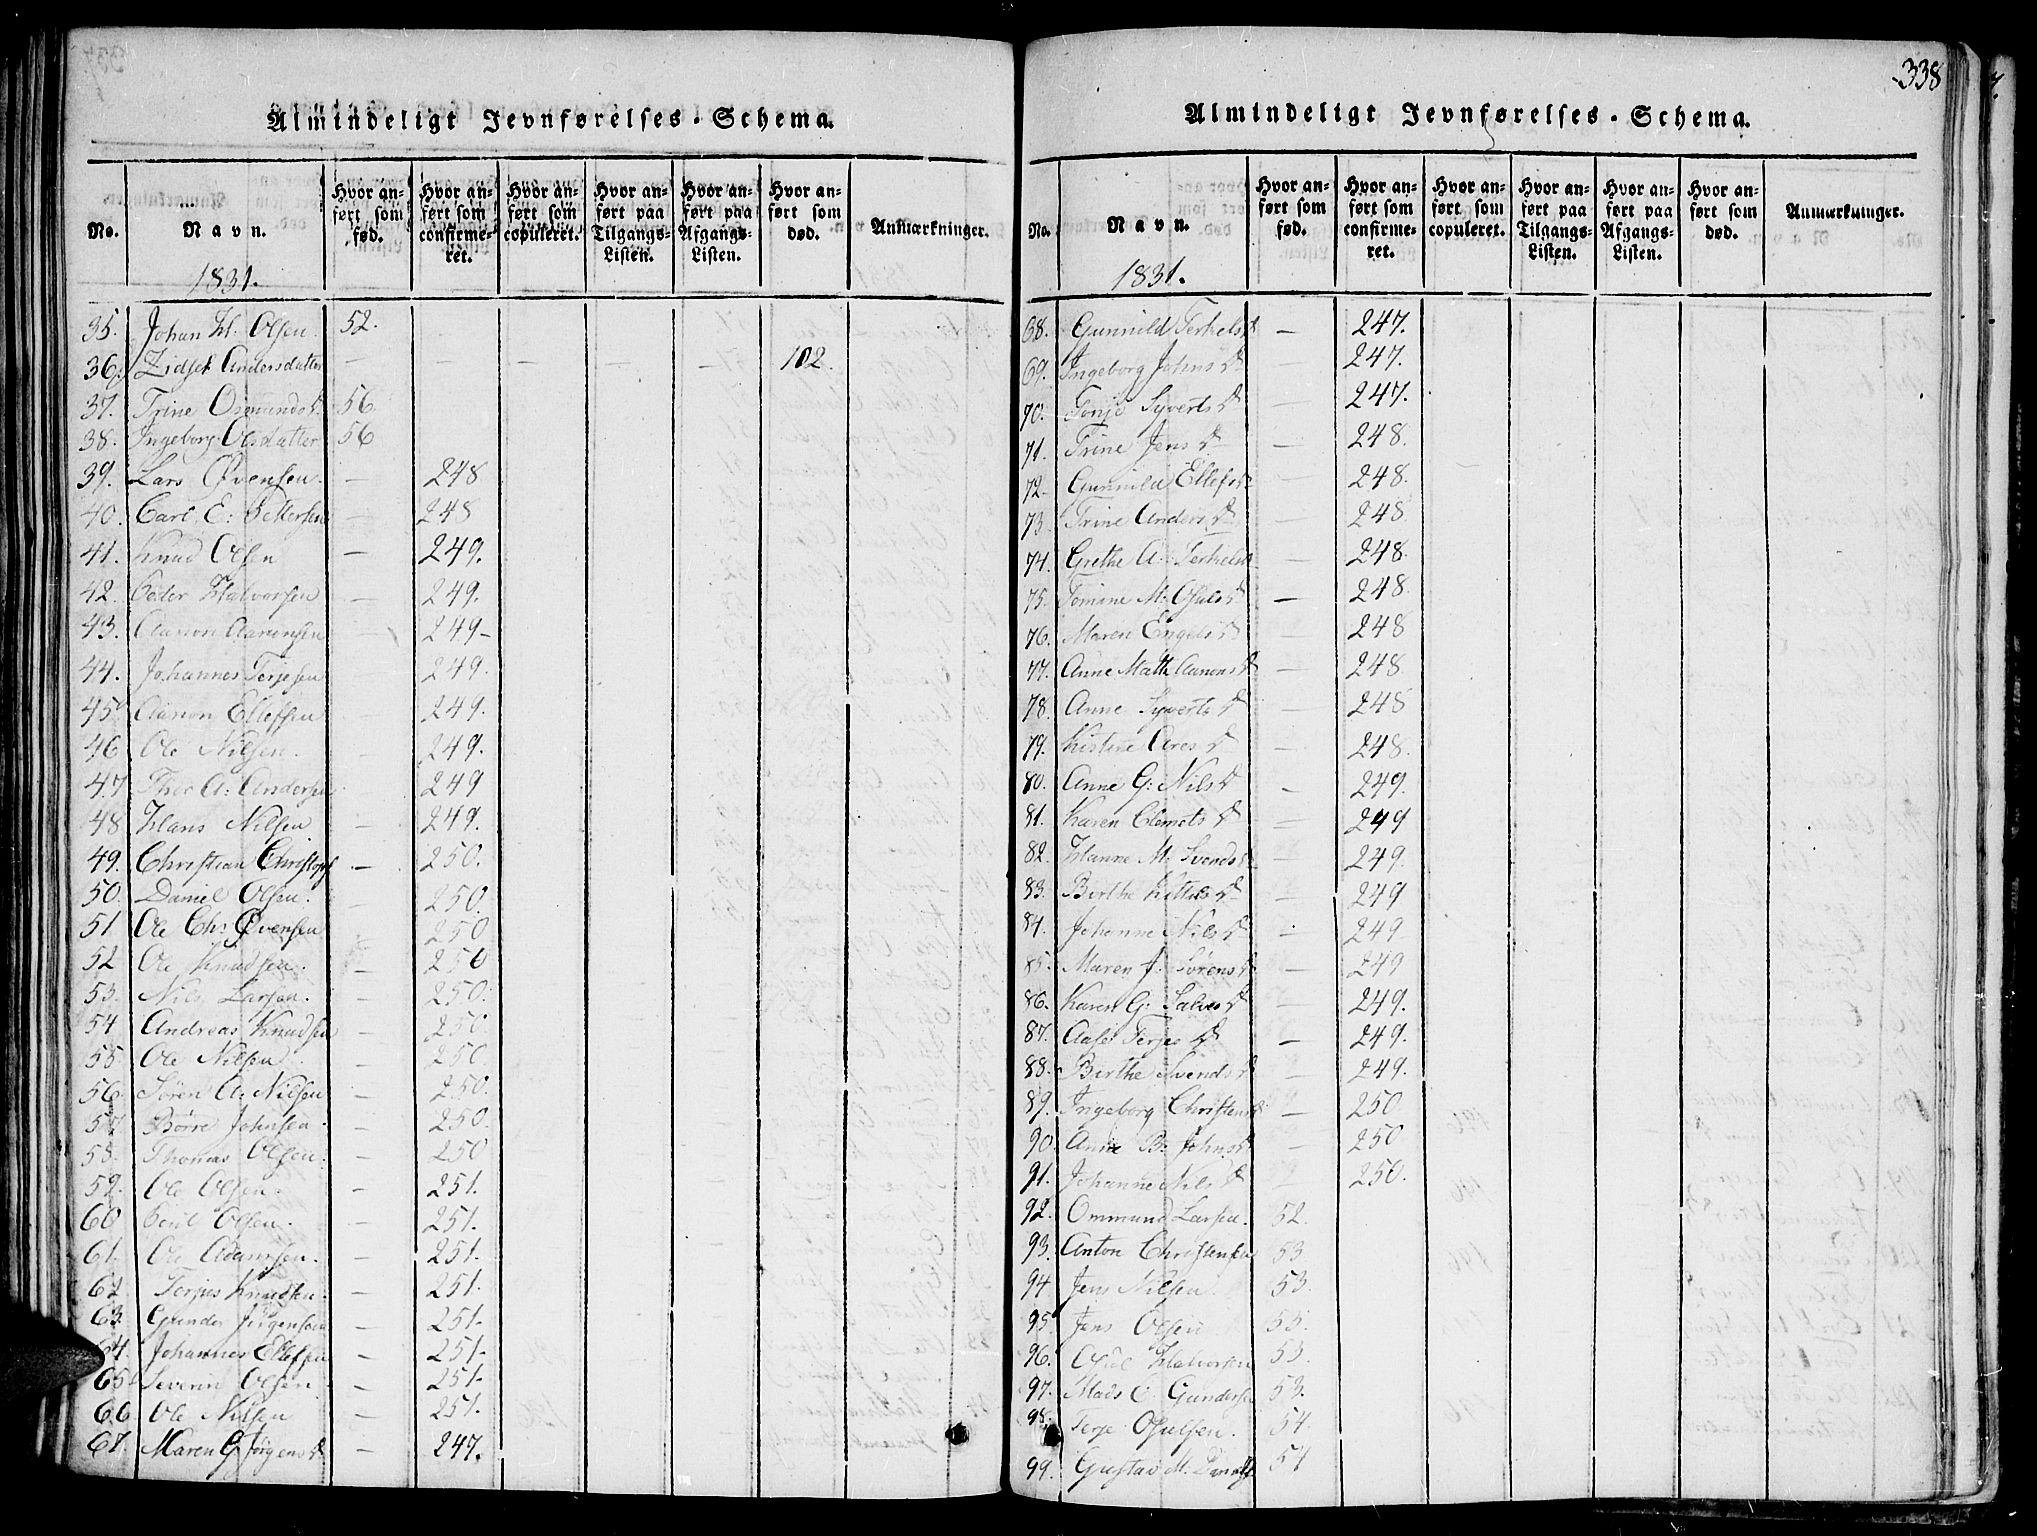 338
Almindeligt Jevnførelses-Schema.
No. Navn. Hvor anført som fød. Hvor anført som confirmeret. Hvor anført som copuleret. Hvor anført paa Tilgangs-Listen. Hvor anført paa Afgangs-Listen. Hvor anført som død. Anmærkninger.
1831.
35. Johan H. Olsen. 52.
36. Zidsel Andersdatter — — — — — — 102.
37. Trine Osmunds D. 56.
38. Ingeborg Olsdatter 56
39. Lars Øvensen. — 248
40. Carl E: Pettersen — 248
41. Knud Olsen — 249.
42. Peder Halvorsen — 249.
43. Aanon Aanonsen — 249-
44. Johannes Terjesen — 249.
45. Aanon Ellefsen — 249.
46 Ole Nilsen. — 249.
47 Thor A: Andersen — 249
48 Hans Nilsen — 249.
49. Christian Christoph — 250.
50. Daniel Olsen. — 250.
51 Ole Chs Øvensen — 250
52 Ole Knudsen. — 250
53. Nils Larsen. — 250.
54 Andreas Knudsen — 250
55. Ole Nilsen. — 250
56. Søren A: Nilsen — 250.
57 Børre Johnsen. — 250.
58. Thomas Olsen. — 250
59. Ole Olsen. — 251.
60 Olsen. — 251.
61. Ole Adamsen. — 251.
62. Terjes Knudsen. — 251.
63. Gunder Jørgensen — 251.
64. Johannes Ellefsen — 251-
65 Severin Olsen — 251.
66 Ole Nilsen — 251.
67. Maren G. Jørgens D — 247.
Almindeligt Jevnførelses-Schema.
No. Navn. Hvor anført som fød. Hvor anført som confirmeret. Hvor anført som copuleret. Hvor anført paa Tilgangs-Listen. Hvor anført paa Afgangs-Listen. Hvor anført som død. Anmærkninger.
1831.
68. Gunnild Terkels D — 247.
69. Ingeborg Johns D — 247.
70. Tonje Syverts D — 247.
71. Trine Jens D — 248.
72. Gunnild Ellefs D — 248.
73. Trine Anders D — 248.
74. Grethe A: Terkels D — 248.
75. Tomine M: Osuls D — 248.
76. Maren Engels D — 248
77. Anne Math Aanons D — 248.
78. Anne Syverts D — 248
79. Kistine Ares D — 248.
80. Anne G: Nils D — 249.
81. Karen Clemets D — 249
82. Hanne M: Svends D — 249.
83. Birthe Kittels D — 249
84. Johanne Nils D — 249
85. Maren J. Sørens D — 249
86. Karen G: Salves D — 249.
87. Aase Terjes D — 249.
88. Birthe Svends D — 249.
89. Ingeborg Christens D — 250
90. Anne B: Johns D — 250
91. Johanne Nils D — 250.
92. Ommund Larsen. 52.
93. Anton Christensen 53.
94 Jens Nilsen. 53.
95. Jens Olsen 53.
96. Osul Halvorsen 53.
97. Mads C. Gundersen 53.
98. Terje Osulsen. 54.
99. Gustav M. 54